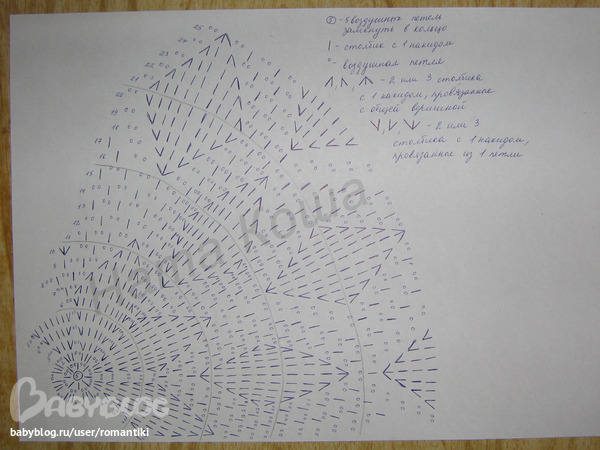 ⑤ - 5 воздушных петель
замкнуть в кольцо
| - столбик с 1 накидом
° - воздушная петля
- 2 или 3 столбика
с 1 накидом, провязанные
с общей вершиной
- 2 или 3
столбика с 1 накидом,
провязанные из 1 петли
25
24
23
22
21
20
19
18
17
16
15
14
13
12
11
10
9
8
7
6
Мама Коша
BABYBLOG
babyblog.ru/user/romantiki